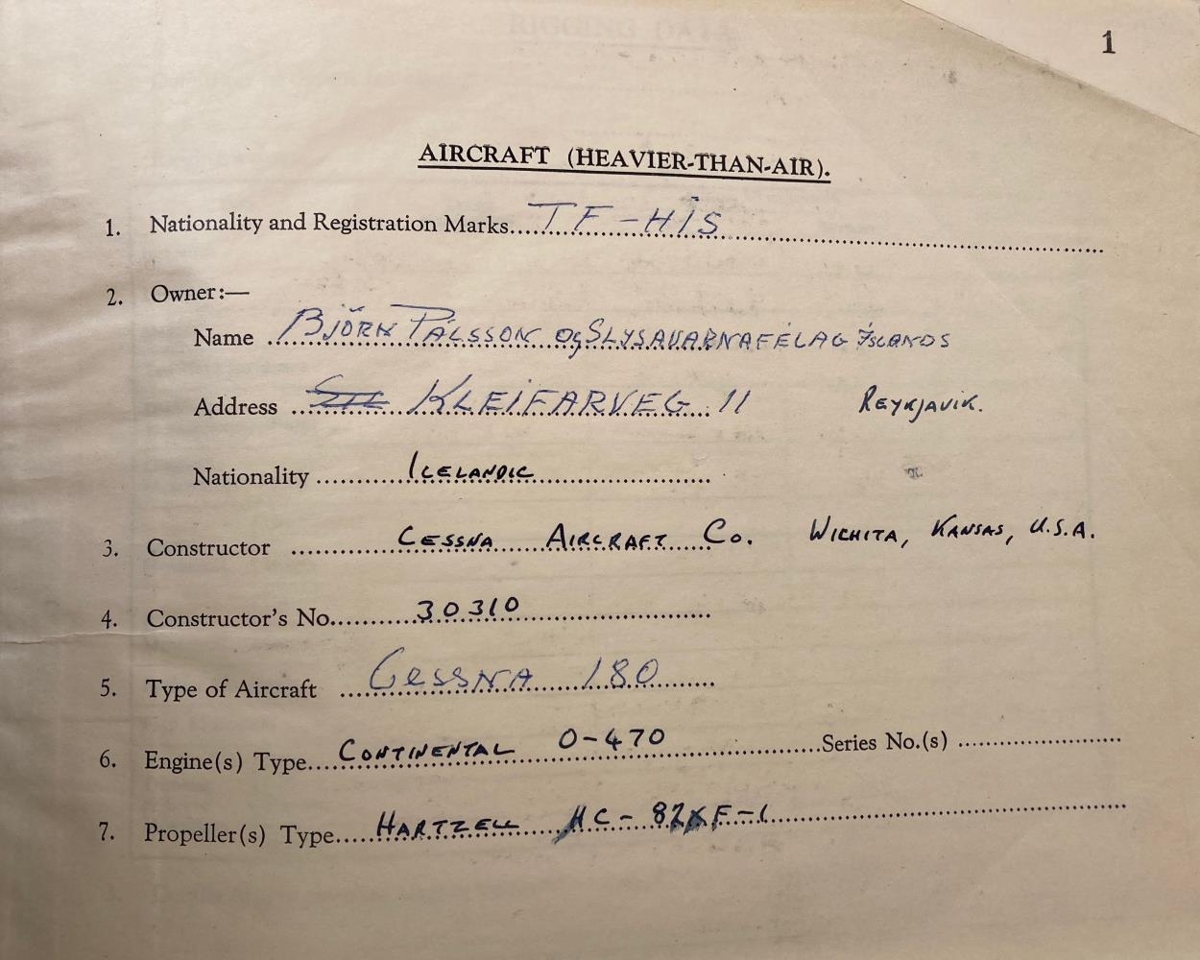 1
AIRCRAFT (HEAVIER-THAN-AIR).
1. Nationality and Registration Marks....TF-HÍS
2. Owner:—
Name BJÖRN PÁLSSON og SLYSAVARNAFÉLAG ÍSLANDS
Address KLEIFARVEG 11 REYKJAVIK.
Nationality ICELANDIC
3. Constructor CESSNA AIRCRAFT CO. WICHITA, KANSAS, U.S.A.
4. Constructor's No. 30310
5. Type of Aircraft CESSNA 180
6. Engine(s) Type CONTINENTAL O-470 Series No.(s)
7. Propeller(s) Type HARTZELL HC-82XF-1